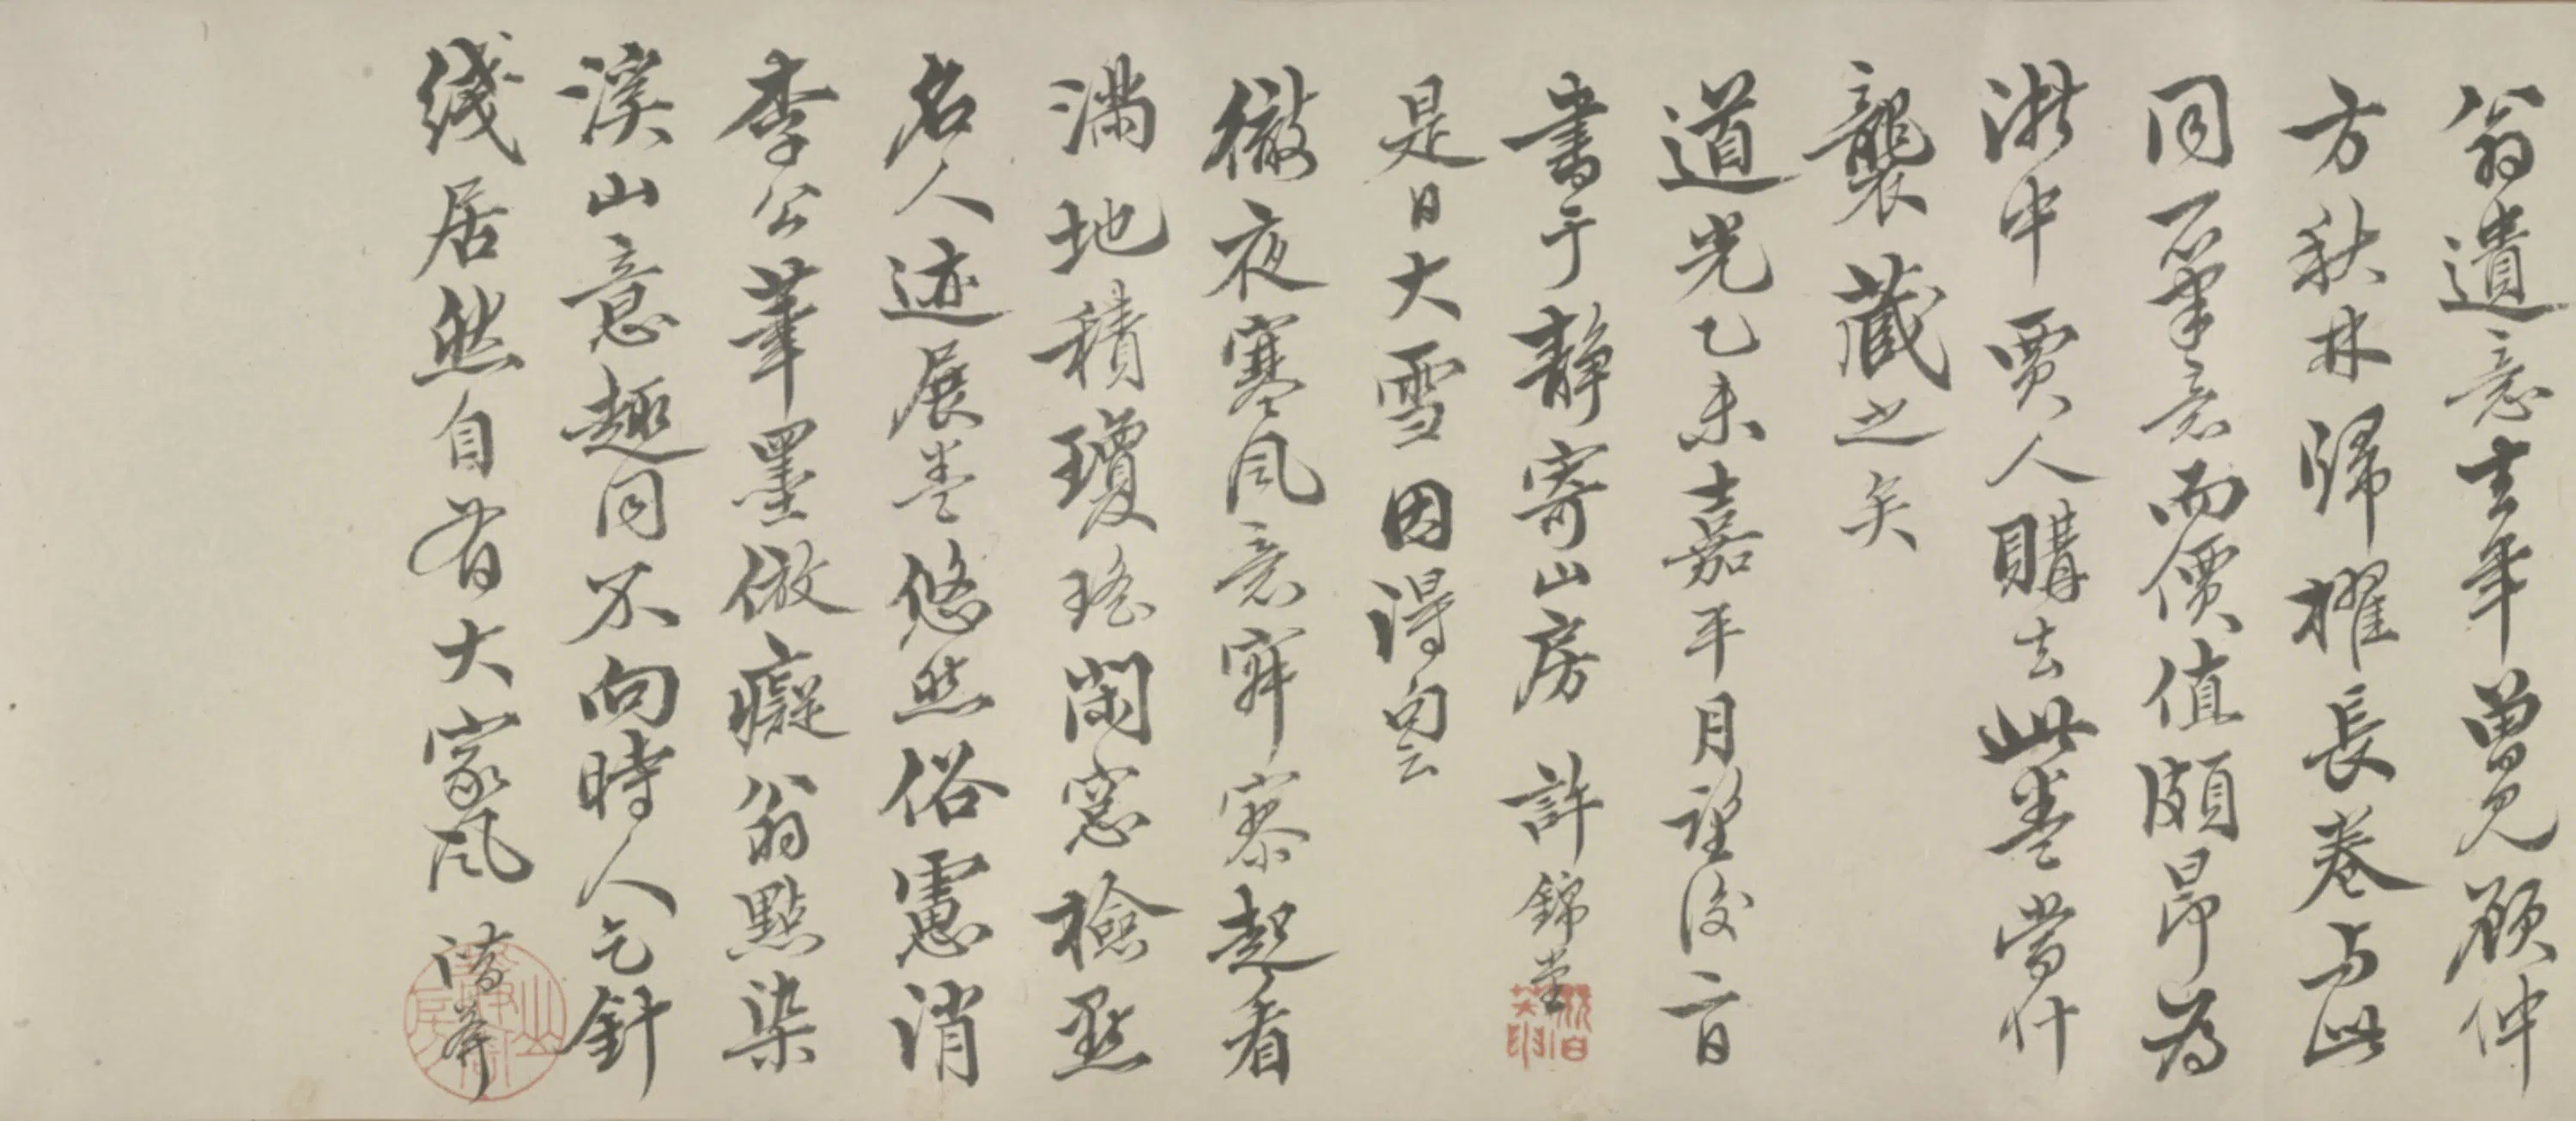 翁遺意去年曾見顧仲
方秋林歸櫂長卷与此
同一筆意而價值頗昂為
淛中賈人購去此卷當什
襲藏之矣
道光乙未嘉平月望後一日
書于靜寄山房 許錦堂
是日大雪因得句云
徹夜寒風意寂寥起看
滿地積瓊瑤閑窓檢點
名人迹展卷悠然俗慮消
李公筆墨倣癡翁點染
溪山意趣同不向時人乞針
綫居然自有大家風